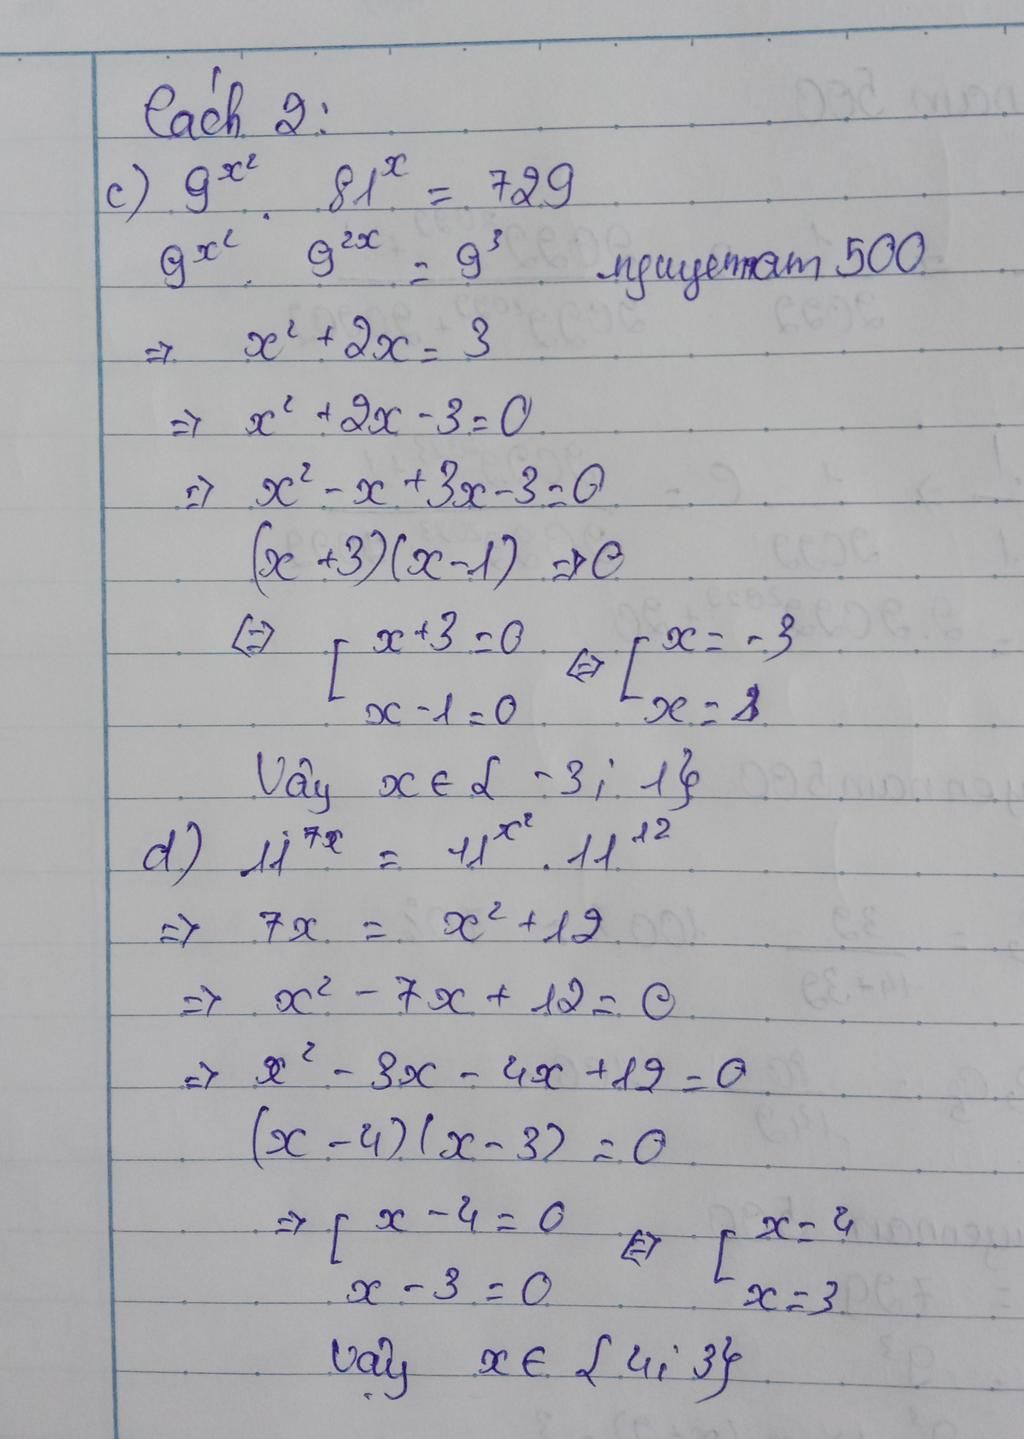 Cách 2:
c) 9^{x^2} . 81^x = 729
9^{x^2} . 9^{2x} = 9^3 nguyetnam 500
=> x^2 + 2x = 3
=> x^2 + 2x - 3 = 0
=> x^2 - x + 3x - 3 = 0
(x + 3)(x - 1) => 0
<=> [ x + 3 = 0 <=> [ x = -3
x - 1 = 0 x = 1
Vậy x ∈ { -3 ; 1 }
d) 11^{7x} = 11^{x^2} . 11^{12}
=> 7x = x^2 + 12
=> x^2 - 7x + 12 = 0
=> x^2 - 3x - 4x + 12 = 0
(x - 4)(x - 3) = 0
=> [ x - 4 = 0 <=> [ x = 4
x - 3 = 0 x = 3
Vậy x ∈ { 4 ; 3 }